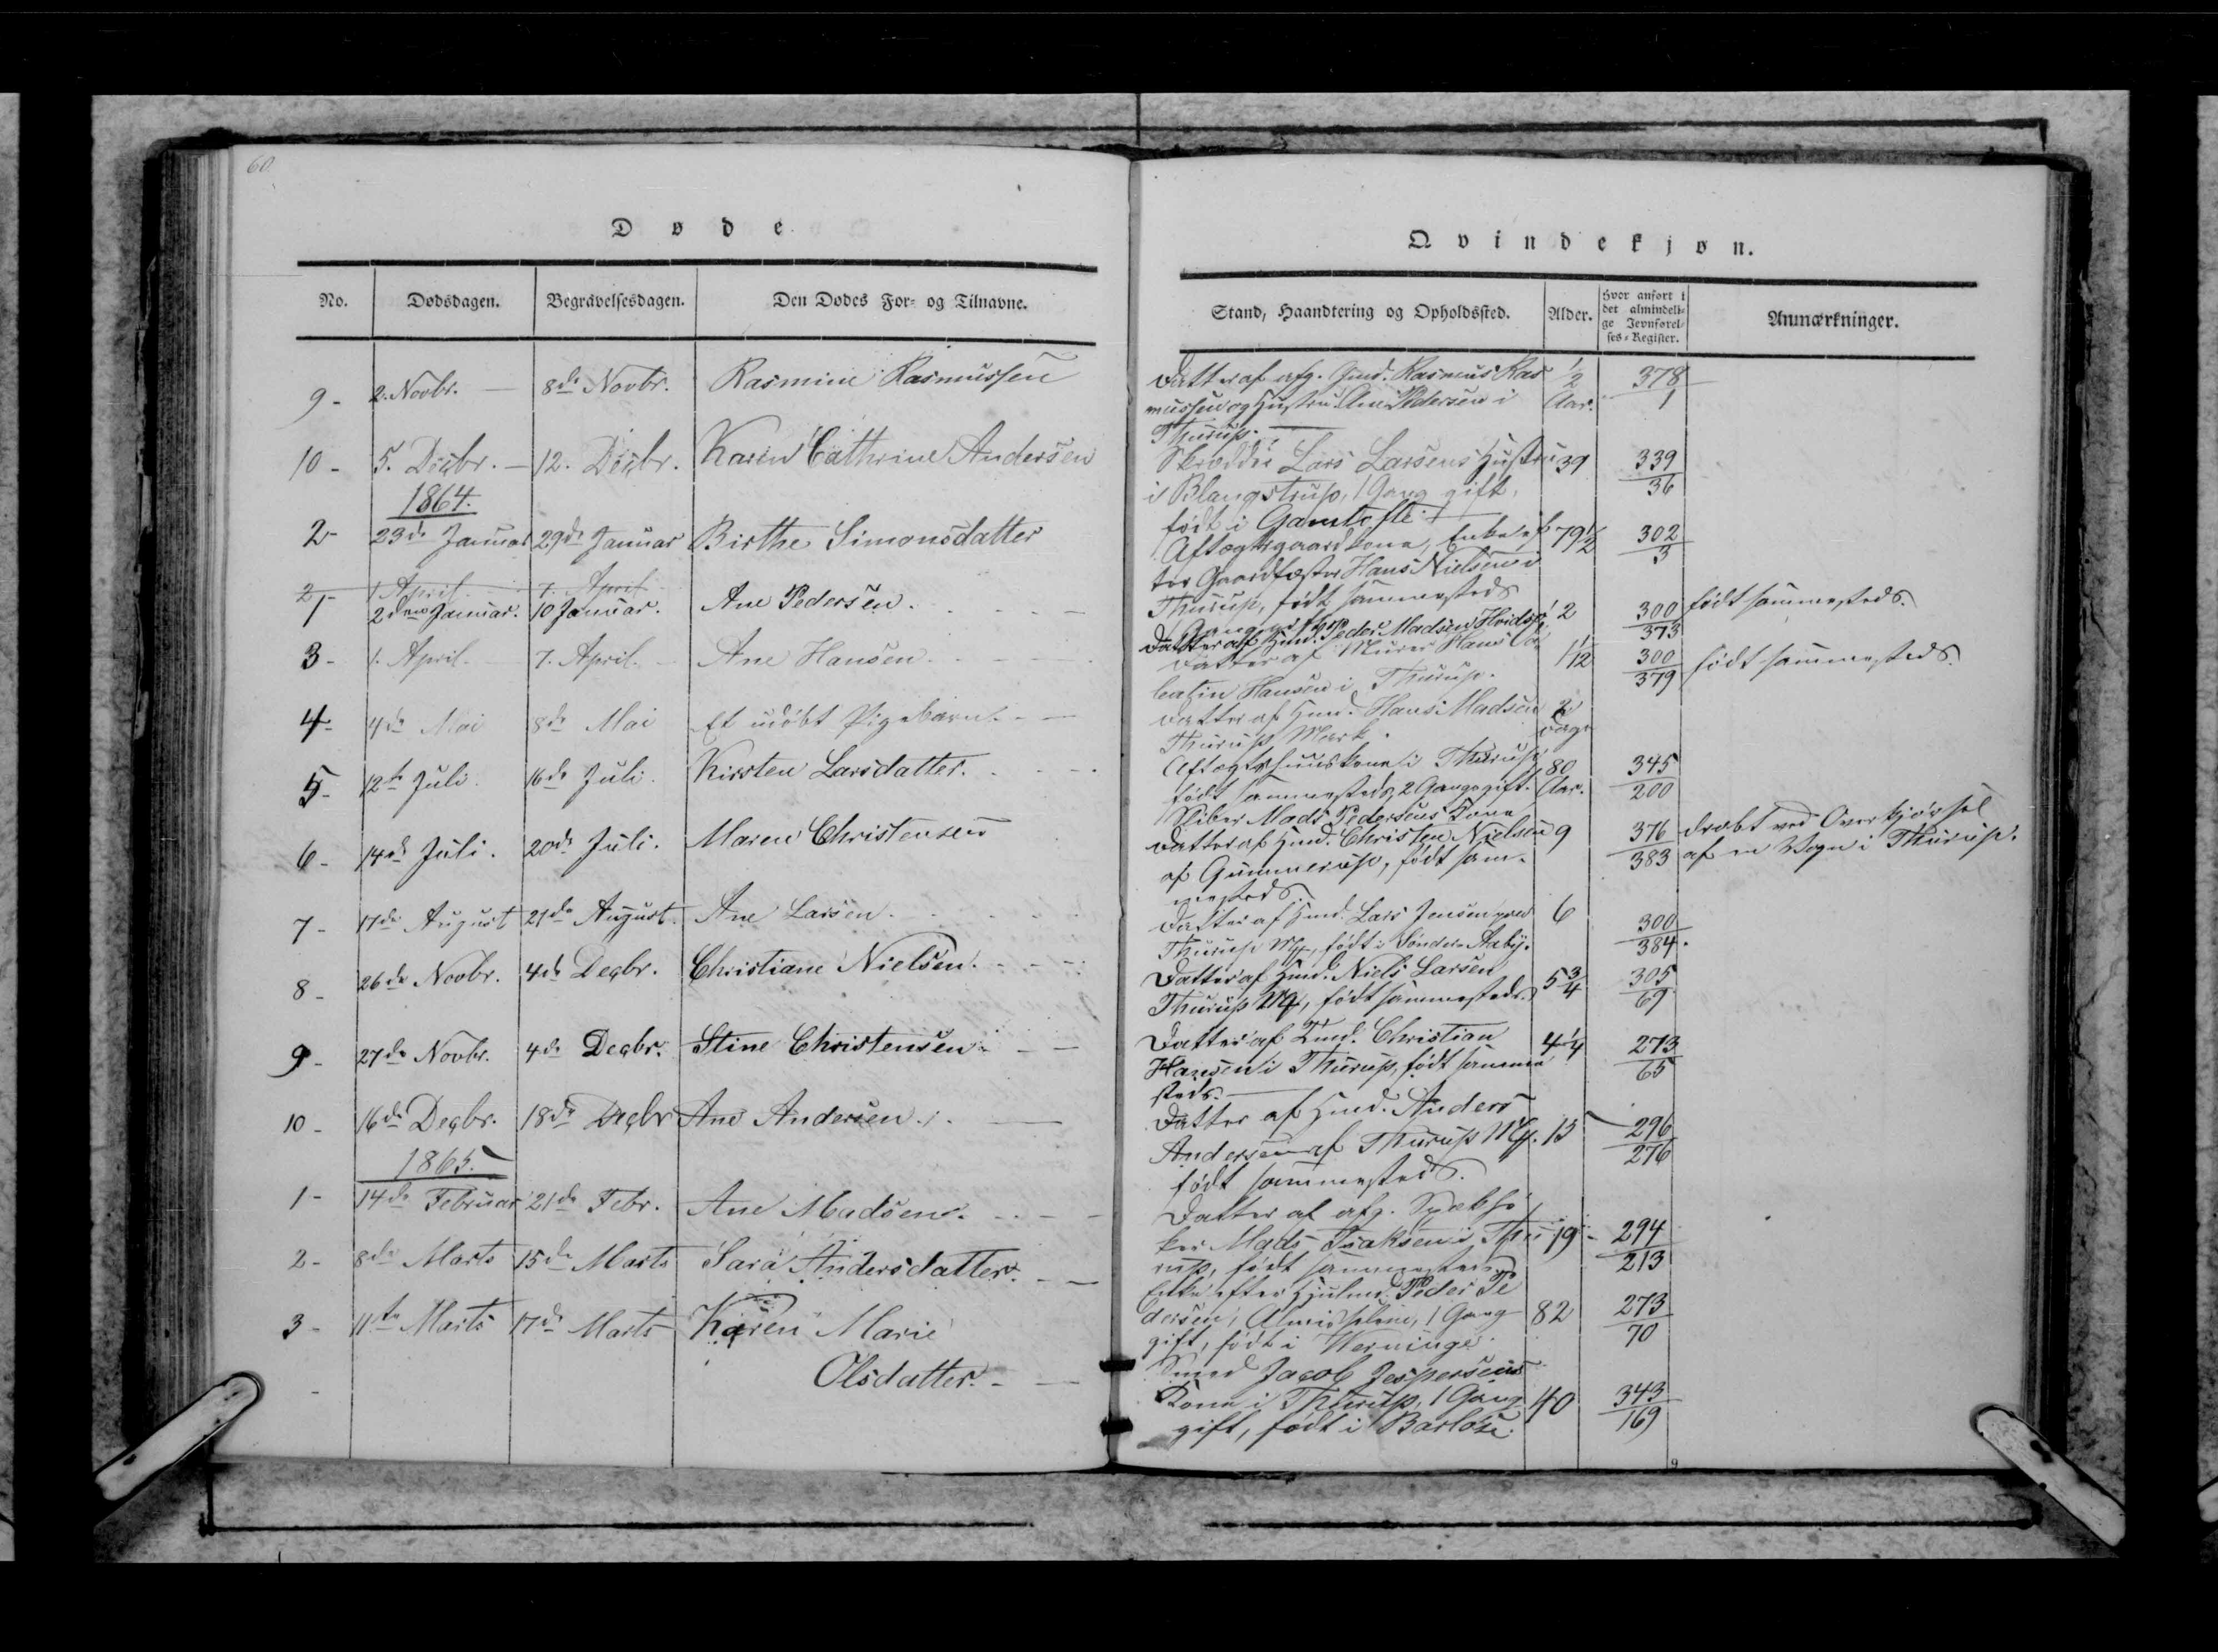 60.
Døde
Qvindekjøn.
No. Dødsdagen. Begravelsesdagen. Den Dødes For- og Tilnavne.
Stand, Haandtering og Opholdssted. Alder. Hvor anført i det almindelige Jevnførelses-Register. Anmærkninger.
9 - 2. Novbr. - 8de Novbr. Rasmine Rasmussen
Datter af afg. Gmd. Rasmus Ras 1/2 378
mussen og Hustru Ane Pedersen i Aar. 1
Thurup.
10 - 5. Decbr. - 12. Decbr. Karen Cathrine Andersen
Skrædder Lars Larsens Hustru 39 339
i Blangstrup, 1 Gang gift, 36
født i Gamtofte
1864.
2 - 23de Januar 29de Januar Birthe Simonsdatter
Aftægtsgaardkone, Enke ef 79 1/2 302
ter Gaardfæster Hans Nielsen i 3
Thurup, født sammesteds
2 1. April 7. April
1 - 2den Januar. 10 Januar. Ane Pedersen.
Datter af Hmd. Peder Madsen 2 300 født sammesteds.
373
3 - 1. April. 7. April. Ane Hansen.
Datter af Murer Hans 1/12 300 født sammesteds.
Hansen i Thurup. 379
4 - 4de Mai 8de Mai Et udøbt Pigebarn.
Datter af Hmd. Hans Madsen 2
Thurup Mark. Dage
5 - 12te Juli. 16de Juli. Kirsten Larsdatter.
Aftægtshuuskone i Thurup 80 345
født sammesteds, 2 Gange gift. Aar. 200
Mads Pedersens Kone
6 - 14de Juli. 20de Juli. Maren Christensen
Datter af Hmd. Christen Nielsen 9 376 dræbt ved Overkjørsel
af Gummerup, født sam- 383 af en Vogn i Thurup.
mesteds.
7 - 17de August 21de August. Ane Larsen.
Datter af Hmd. Lars Jensen 6 300
Thurup M, født i Sønder-Aaby. 384.
8 - 26de Novbr. 4de Decbr. Christiane Nielsen.
Datter af Hmd. Niels Larsen 5 3/4 305
Thurup M, født sammesteds. 69
9 - 27de Novbr. 4de Decbr. Stine Christensen
Datter af Hmd. Christian 4 1/4 273
Hansen i Thurup, født samme 65
steds.
10 - 16de Decbr. 18de Decbr Ane Andersen.
Datter af Hmd. Anders
Andersen af Thurup M. 15 296
født sammesteds. 276
1865.
1 - 14de Februar 21de Febr. Ane Madsen.
Datter af afg.
ker Mads Isaksen i Thu 19 - 294
rup, født sammesteds 213
2 - 8de Marts 15de Marts Sara Andersdatter.
Enke efter Hjulmd. Peder Pe
dersen, Almislem, 1 Gang 82 273
gift, født i Werninge. 70
3 - 11te Marts 17de Marts Karen Marie
Olsdatter.
Smed Jacob Jespersens
Kone i Thurup, 1 Gang 40 343
gift, født i Barløse. 169
9